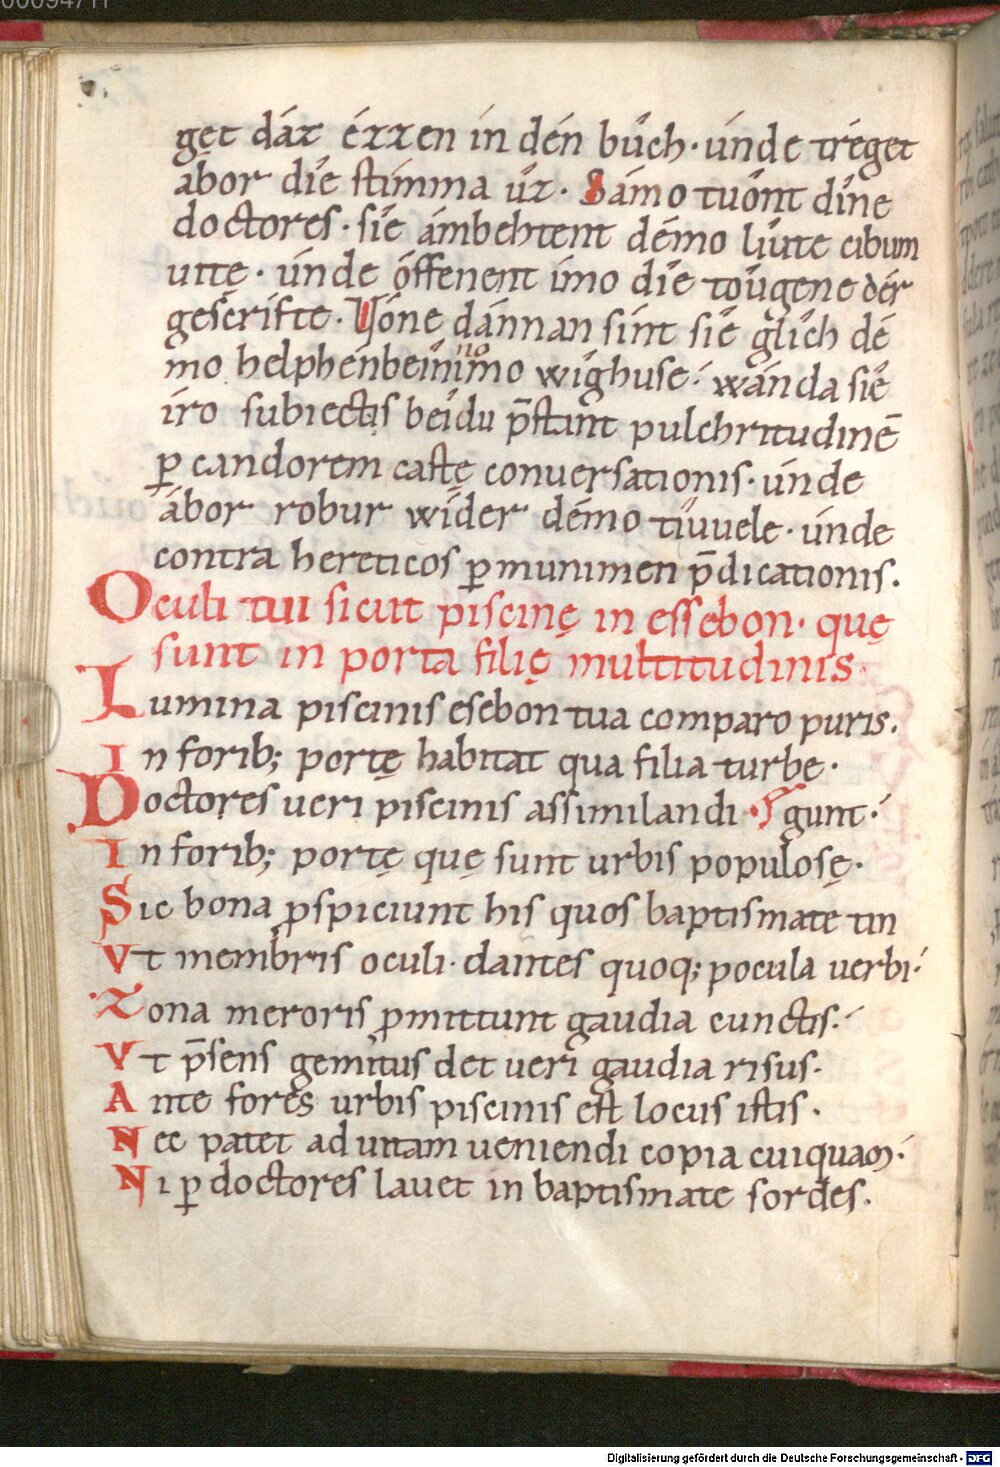 gęt dáz ézzen in dén bûch · únde tréget
ábor díe stímma ûz · Sámo tuônt dîne
doctores · síe ámbehtent démo líute cibum
uitę · únde óffenent ímo díe toûgene dér
gescrífte · Vóne dánnan sínt síe glîch dé
mo helphénbeinínmo wîghuse · wánda síe
íro subiectis beidu p̄stant pulchritudinē
ꝑ candorem castę conuersationis · únde
ábor robur wíder démo tíuuele · únde
contra hereticos ꝑ munimen p̄dicationis.
Oculi tui sicut piscinę in essebon · quę
sunt in porta filię multitudinis.
Lumina piscinis esebon tua comparo puris.
In forib; portę habitat qua filia turbę ·
Doctores ueri piscinis assimilandi · gunt ·
In forib; portę quę sunt urbis populosę ·
Sic bona ꝑspiciunt his quos baptismate tin
Vt membris oculi · dantes quoq; pocula uerbi ·
Zona meroris ꝓmittunt gaudia cunctis.
Vt p̄sens gemitus det ueri gaudia risus ·
Ante fores urbis piscinis est locus istis ·
Nec patet ad uitam ueniendi copia cuiquam ·
Ni ꝑ doctores lauet in baptismate sordes.
Digitalisierung gefördert durch die Deutsche Forschungsgemeinschaft - DFG